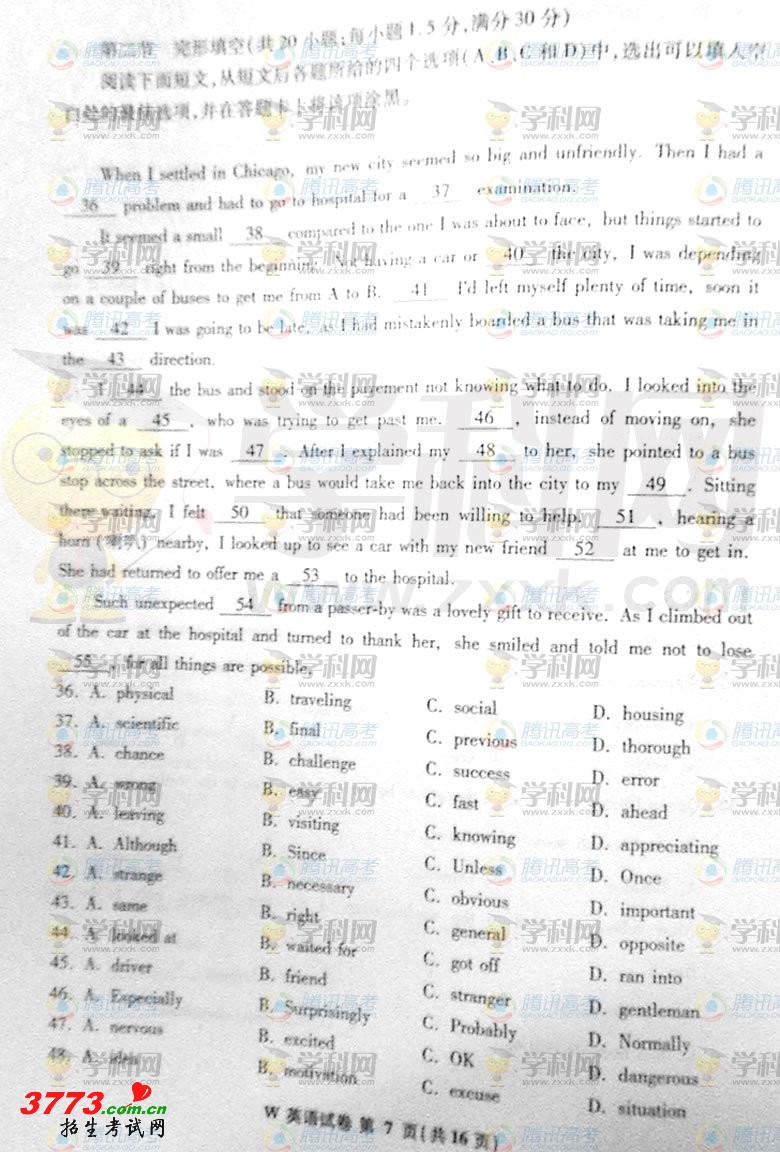 第二节 完形填空(共20小题;每小题1.5分,满分30分)
阅读下面短文,从短文后各题所给的四个选项(A、B、C和D)中,选出可以填入空
白处的最佳选项,并在答题卡上将该项涂黑。
When I settled in Chicago, my new city seemed so big and unfriendly. Then I had a
36 problem and had to go to hospital for a 37 examination.
It seemed a small 38 compared to the one I was about to face, but things started to
go 39 right from the beginning. Not having a car or 40 the city, I was depending
on a couple of buses to get me from A to B. 41 I'd left myself plenty of time, soon it
was 42 I was going to be late, as I had mistakenly boarded a bus that was taking me in
the 43 direction.
I 44 the bus and stood on the pavement not knowing what to do. I looked into the
eyes of a 45 , who was trying to get past me. 46 , instead of moving on, she
stopped to ask if I was 47 . After I explained my 48 to her, she pointed to a bus
stop across the street, where a bus would take me back into the city to my 49 . Sitting
there waiting, I felt 50 that someone had been willing to help. 51 , hearing a
horn (喇叭) nearby, I looked up to see a car with my new friend 52 at me to get in.
She had returned to offer me a 53 to the hospital.
Such unexpected 54 from a passer-by was a lovely gift to receive. As I climbed out
of the car at the hospital and turned to thank her, she smiled and told me not to lose
55 , for all things are possible.
36. A. physical B. traveling C. social D. housing
37. A. scientific B. final C. previous D. thorough
38. A. chance B. challenge C. success D. error
39. A. wrong B. easy C. fast D. ahead
40. A. leaving B. visiting C. knowing D. appreciating
41. A. Although B. Since C. Unless D. Once
42. A. strange B. necessary C. obvious D. important
43. A. same B. right C. general D. opposite
44. A. looked at B. waited for C. got off D. ran into
45. A. driver B. friend C. stranger D. gentleman
46. A. Especially B. Surprisingly C. Probably D. Normally
47. A. nervous B. excited C. OK D. dangerous
48. A. idea B. motivation C. excuse D. situation
W 英语试卷 第 7 页(共16页)
学科网
www.zxxk.com
腾讯高考
GAOKAO.QQ.COM
3773.com.cn
招生考试网